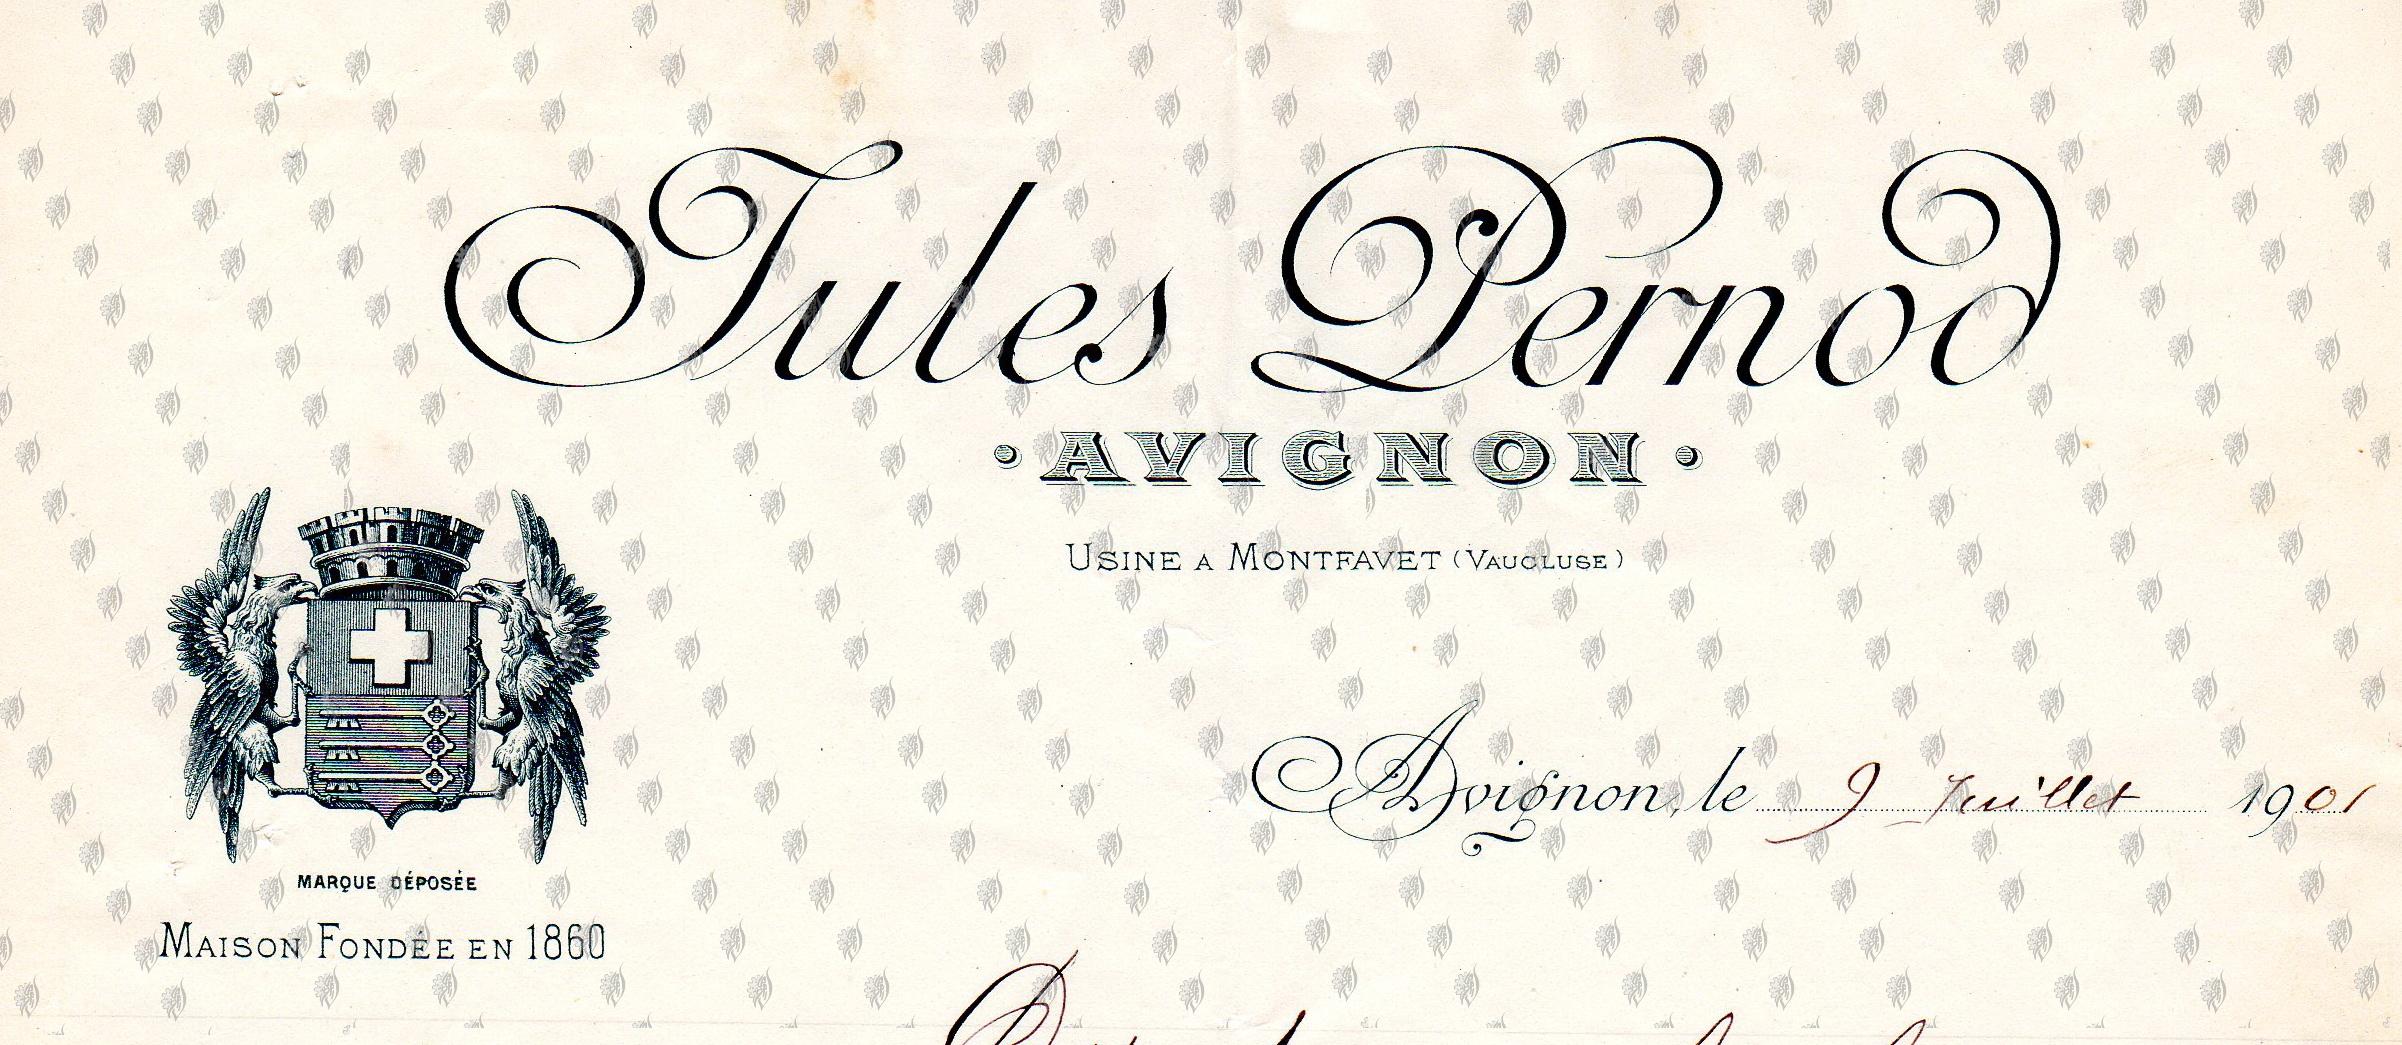 Jules Pernod
• AVIGNON •
USINE A MONTFAVET (VAUCLUSE)
Avignon, le 9 Juillet 1901
MARQUE DÉPOSÉE
MAISON FONDÉE EN 1860